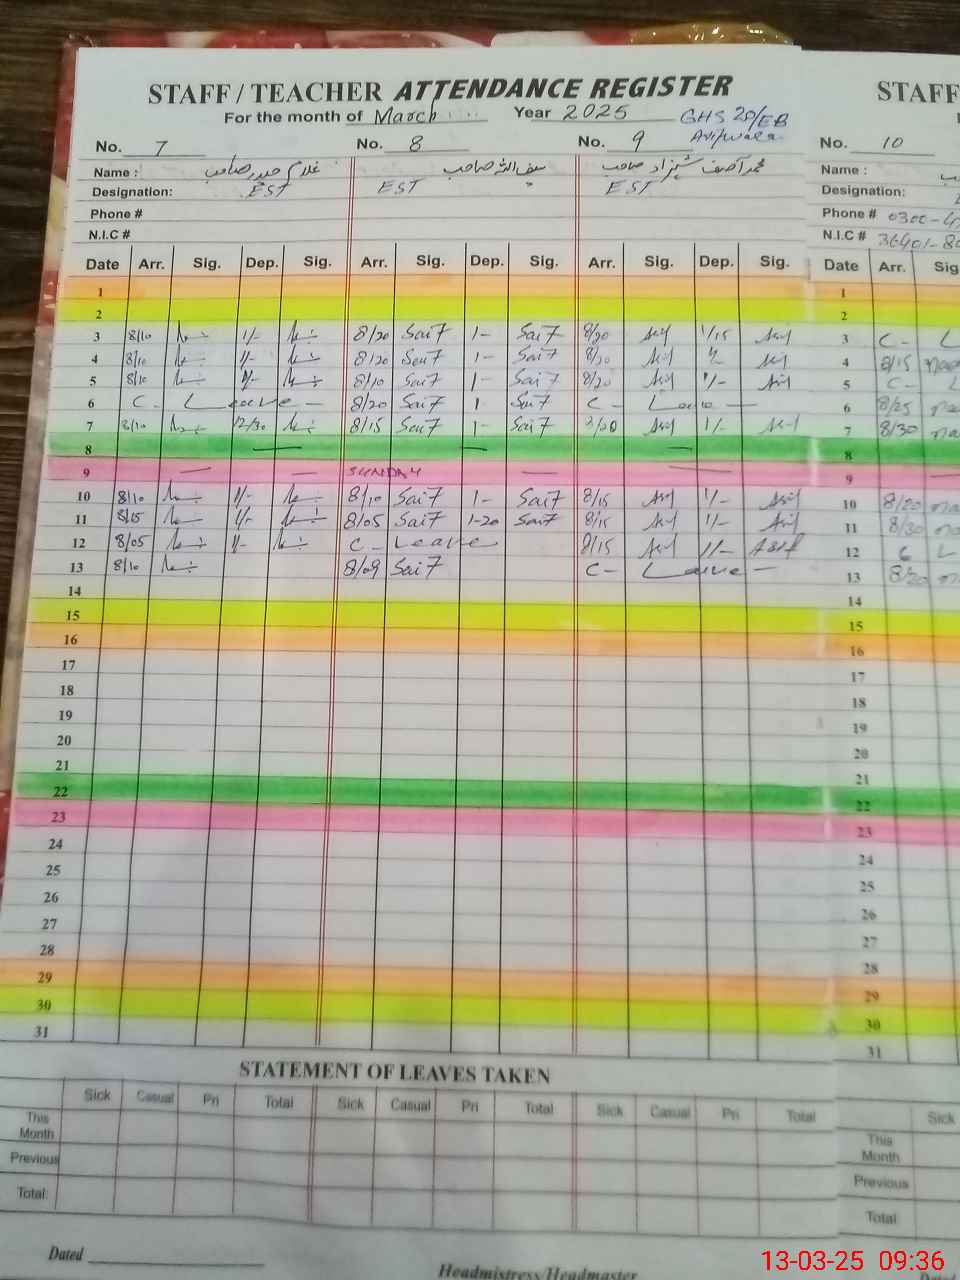 STAFF / TEACHER ATTENDANCE REGISTER
For the month of March Year 2025 GHS 20/EB
No. 7 No. 8 No. 9
Name : غلام حیدر صاحب سیف اللہ صاحب محمد آصف شہزاد صاحب
Designation: EST EST EST
Phone #
N.I.C #
Date Arr. Sig. Dep. Sig. Arr. Sig. Dep. Sig. Arr. Sig. Dep. Sig.
1
2
3 8/10 1/- 8/20 Saif 1- Saif 8/20 Asif 1/15 Asif
4 8/10 1/- 8/20 Saif 1- Saif 8/20 Asif 1/- Asif
5 8/10 1/- 8/10 Saif 1- Saif 8/20 Asif 1/- Asif
6 C - Leave - 8/20 Saif 1- Saif C - Leave -
7 8/10 12/30 8/15 Saif 1- Saif Asif 1/- Asif
8 — — —
9 — — SUNDAY — —
10 8/10 1/- 8/10 Saif 1- Saif 8/15 Asif 1/- Asif
11 8/15 1/- 8/05 Saif 1-20 Saif 8/15 Asif 1/- Asif
12 8/05 1/- C - Leave 8/15 Asif 1/- Asif
13 8/10 8/09 Saif C - Leave -
14
15
16
17
18
19
20
21
22
23
24
25
26
27
28
29
30
31
STATEMENT OF LEAVES TAKEN
Sick Casual Pri Total Sick Casual Pri Total Sick Casual Pri Total
This Month
Previous
Total:
Dated
Headmistress/Headmaster
STAFF
No. 10
Name :
Designation:
Phone # 0300-4
N.I.C # 36401-8
Date Arr. Sig
1
2
3 C - L
4 8/15
5 C - L
6 8/25
7 8/30
8
9 —
10 8/20
11 8/30
12 L
13 8/20
14
15
16
17
18
19
20
21
22
23
24
25
26
27
28
29
30
31
Sick
This Month
Previous
Total
Dated
13-03-25 09:36